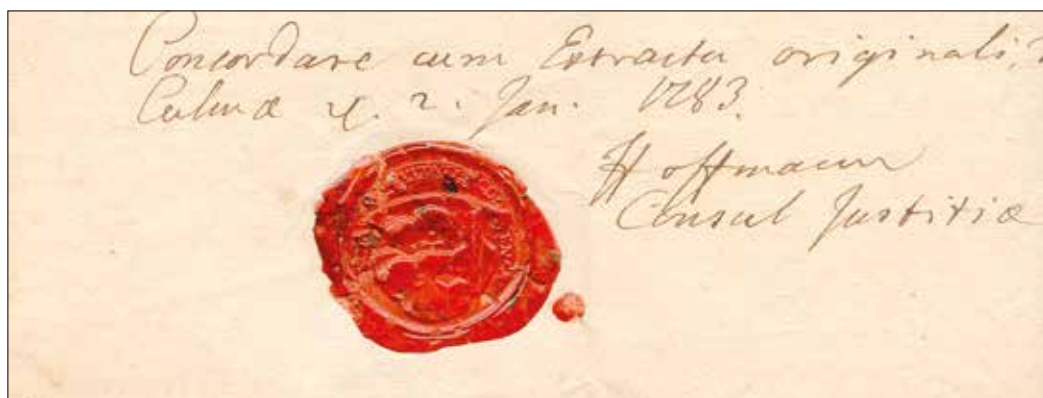 Concordare cum Extractu originali,
Culmæ d. 2. Jan. 1783.
Hoffmann
Consul Justitiæ